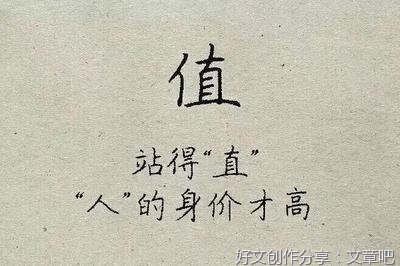 值
站得“直”
“人”的身价才高
好文创作分享：文章吧